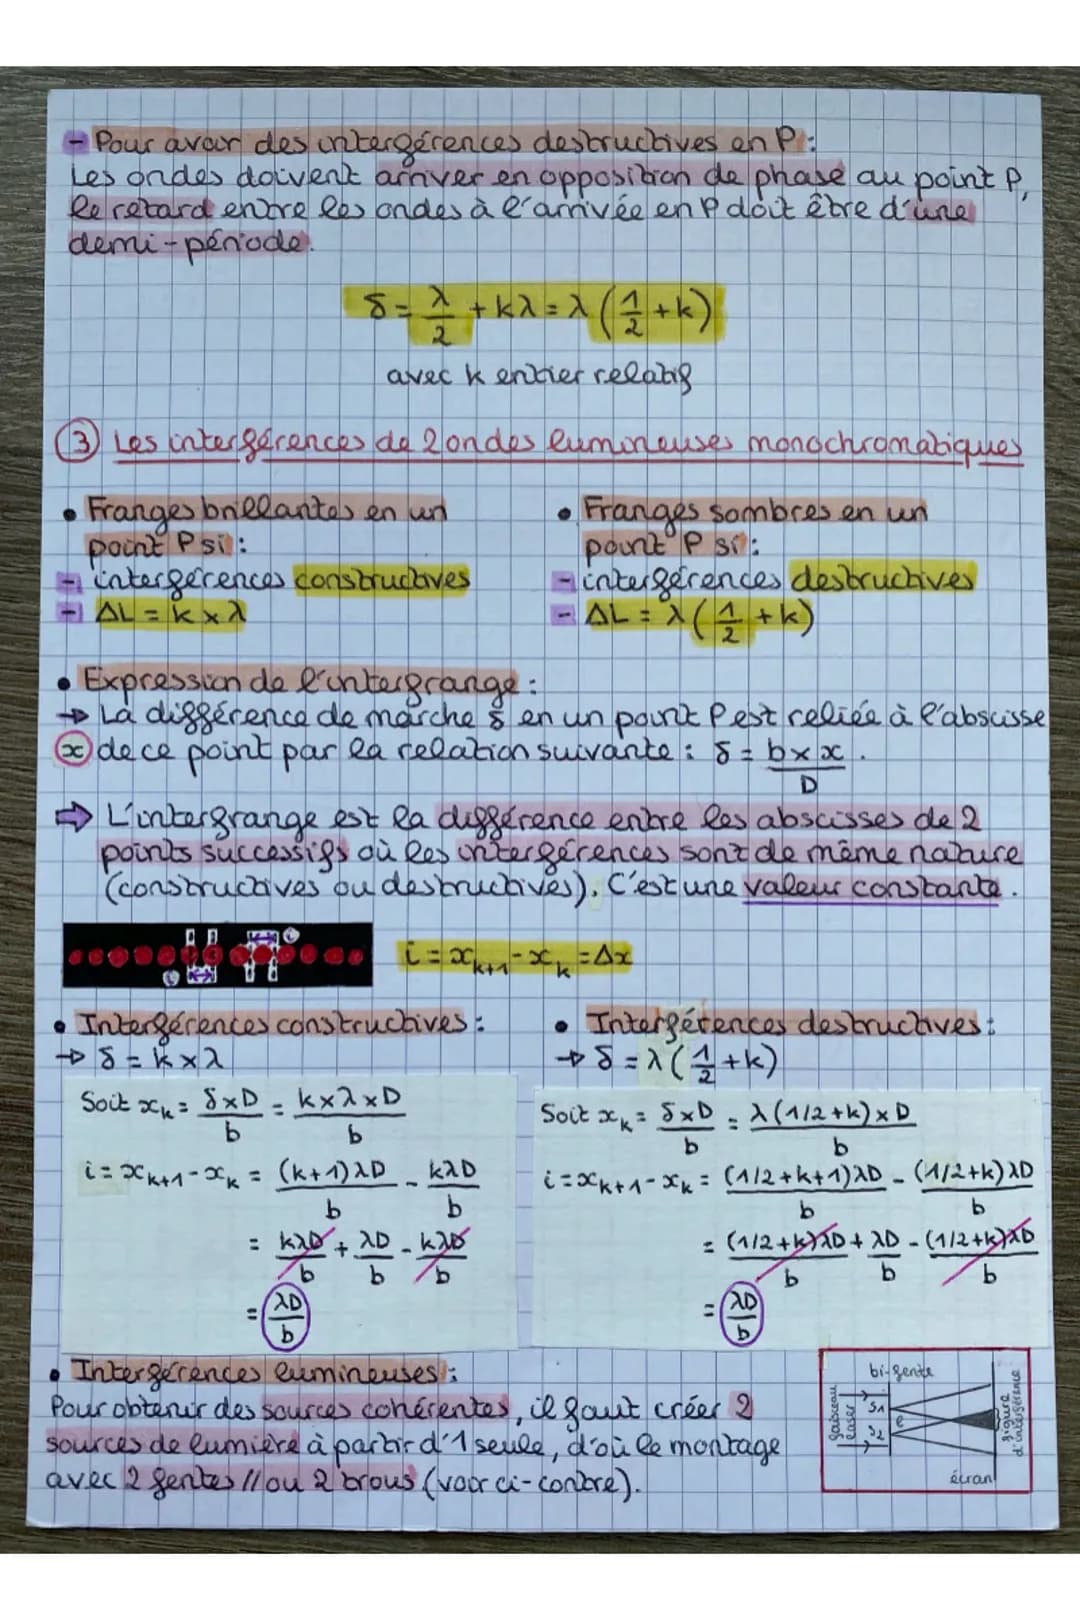 - Pour avoir des interférences destructives en P :
Les ondes doivent arriver en opposition de phase au point P,
le retard entre les ondes à l'arrivée en P doit être d'une
demi-période.
δ = λ/2 + kλ = λ(1/2 + k)
avec k entier relatif
③ Les interférences de 2 ondes lumineuses monochromatiques
• Franges brillantes en un
point P si :
- interférences constructives
- ΔL = k x λ
• Franges sombres en un
point P si :
- interférences destructives
- ΔL = λ(1/2 + k)
• Expression de l'interfrange :
→ La différence de marche δ en un point P est reliée à l'abscisse
x de ce point par la relation suivante : δ = b x x / D .
⇒ L'interfrange est la différence entre les abscisses de 2
points successifs où les interférences sont de même nature
(constructives ou destructives). C'est une valeur constante.
i
i
i = x_{k+1} - x_k = Δx
• Interférences constructives :
→ δ = k x λ
Soit x_k = δxD/b = kxλxD/b
i = x_{k+1} - x_k = (k+1)λD/b - kλD/b
= kλD/b + λD/b - kλD/b
= λD/b
• Interférences destructives :
→ δ = λ(1/2 + k)
Soit x_k = δxD/b = λ(1/2+k)xD/b
i = x_{k+1} - x_k = (1/2+k+1)λD/b - (1/2+k)λD/b
= (1/2+k)λD/b + λD/b - (1/2+k)λD/b
= λD/b
• Interférences lumineuses :
Pour obtenir des sources cohérentes, il faut créer 2
sources de lumière à partir d'1 seule, d'où le montage
avec 2 fentes // ou 2 trous (voir ci-contre).
bi-fente
faisceau
laser
S1
e
S2
figure
d'interférence
écran